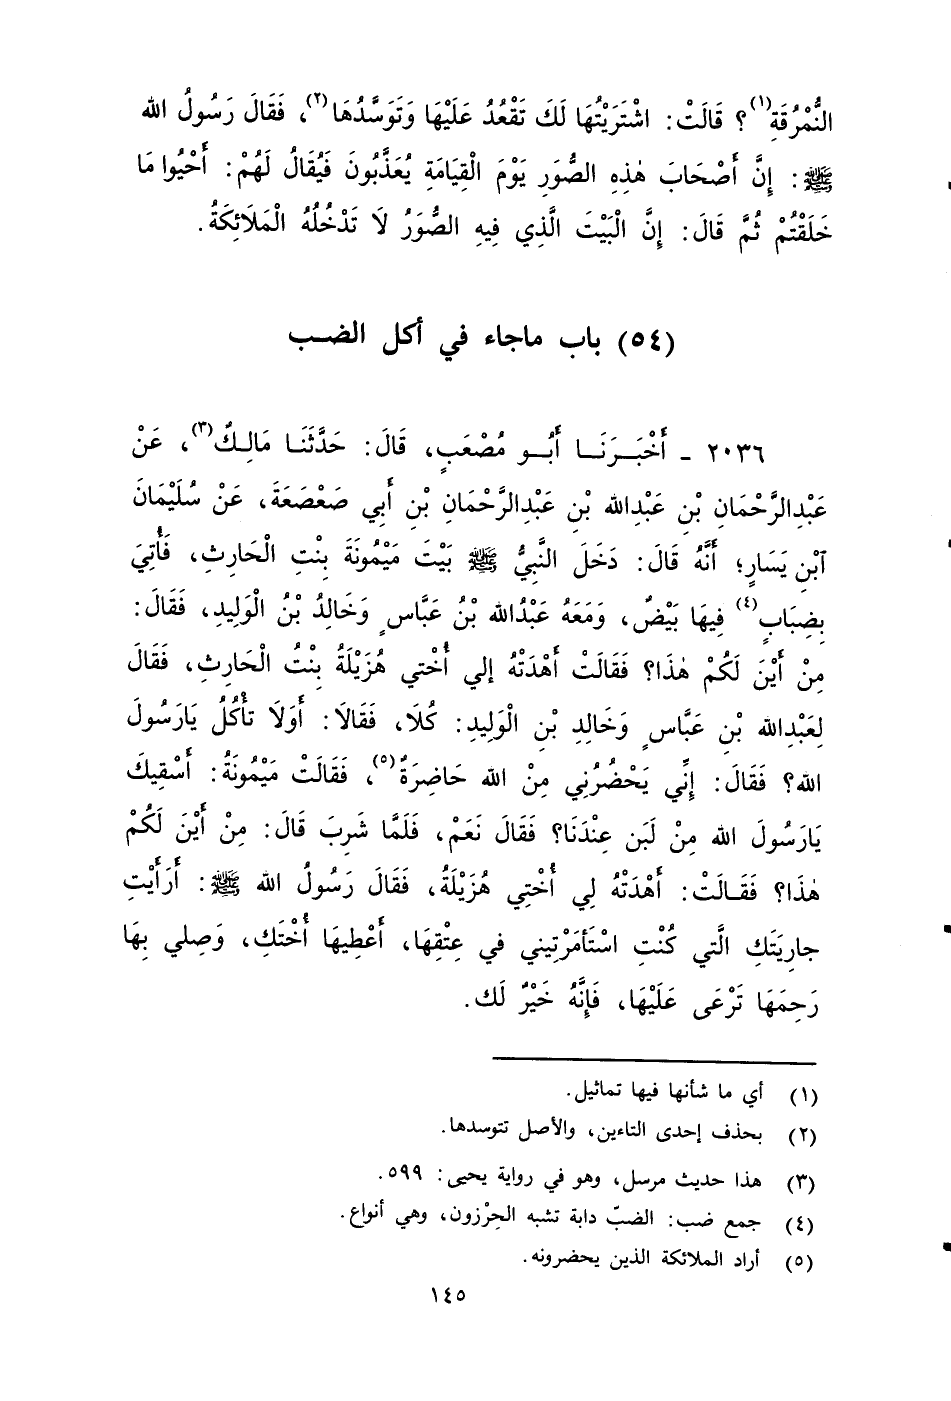 النُّمْرُقَةِ(١)؟ قَالَتْ: اشْتَرَيْتُهَا لَكَ تَقْعُدُ عَلَيْهَا وَتَوَسَّدُهَا(٢)، فَقَالَ رَسُولُ الله
ﷺ: إِنَّ أَصْحَابَ هٰذِهِ الصُّوَرِ يَوْمَ الْقِيَامَةِ يُعَذَّبُونَ فَيُقَالُ لَهُمْ: أَحْيُوا مَا
خَلَقْتُمْ ثُمَّ قَالَ: إِنَّ الْبَيْتَ الَّذِي فِيهِ الصُّوَرُ لَا تَدْخُلُهُ الْمَلَائِكَةُ.
(٥٤) باب ماجاء في أكل الضب
٢٠٣٦ - أَخْبَرَنَا أَبُو مُصْعَبٍ، قَالَ: حَدَّثَنَا مَالِكٌ(٣)، عَنْ
عَبْدِالرَّحْمَانِ بْنِ عَبْدِالله بْنِ عَبْدِالرَّحْمَانِ بْنِ أَبِي صَعْصَعَةَ، عَنْ سُلَيْمَانَ
آبْنِ يَسَارٍ؛ أَنَّهُ قَالَ: دَخَلَ النَّبِيُّ ﷺ بَيْتَ مَيْمُونَةَ بِنْتِ الْحَارِثِ، فَأُتِيَ
بِضِبَابٍ(٤) فِيهَا بَيْضٌ، وَمَعَهُ عَبْدُالله بْنُ عَبَّاسٍ وَخَالِدُ بْنُ الْوَلِيدِ، فَقَالَ:
مِنْ أَيْنَ لَكُمْ هٰذَا؟ فَقَالَتْ أَهْدَتْهُ إلي أُخْتِي هُزَيْلَةُ بِنْتُ الْحَارِثِ، فَقَالَ
لِعَبْدِالله بْنِ عَبَّاسٍ وَخَالِدِ بْنِ الْوَلِيدِ: كُلَا، فَقَالَا: أَوَلَا تَأْكُلُ يَارَسُولَ
الله؟ فَقَالَ: إِنِّي يَحْضُرُنِي مِنْ الله حَاضِرَةٌ(٥)، فَقَالَتْ مَيْمُونَةُ: أَسْقِيكَ
يَارَسُولَ الله مِنْ لَبَنٍ عِنْدَنَا؟ فَقَالَ نَعَمْ، فَلَمَّا شَرِبَ قَالَ: مِنْ أَيْنَ لَكُمْ
هٰذَا؟ فَقَالَتْ: أَهْدَتْهُ لِي أُخْتِي هُزَيْلَةُ، فَقَالَ رَسُولُ الله ﷺ: أَرَأَيْتِ
جارِيَتَكِ الَّتِي كُنْتِ اسْتَأمَرْتِينِي فِي عِتْقِهَا، أَعْطِيهَا أُخْتَكِ، وَصِلِي بِهَا
رَحِمَهَا تَرْعَى عَلَيْهَا، فَإِنَّهُ خَيْرٌ لَك.
(١) أي ما شأنها فيها تماثيل.
(٢) بحذف إحدى التاءين، والأصل تتوسدها.
(٣) هذا حديث مرسل، وهو في رواية يحيى: ٥٩٩.
(٤) جمع ضب: الضبّ دابة تشبه الحِرْزون، وهي أنواع.
(٥) أراد الملائكة الذين يحضرونه.
١٤٥